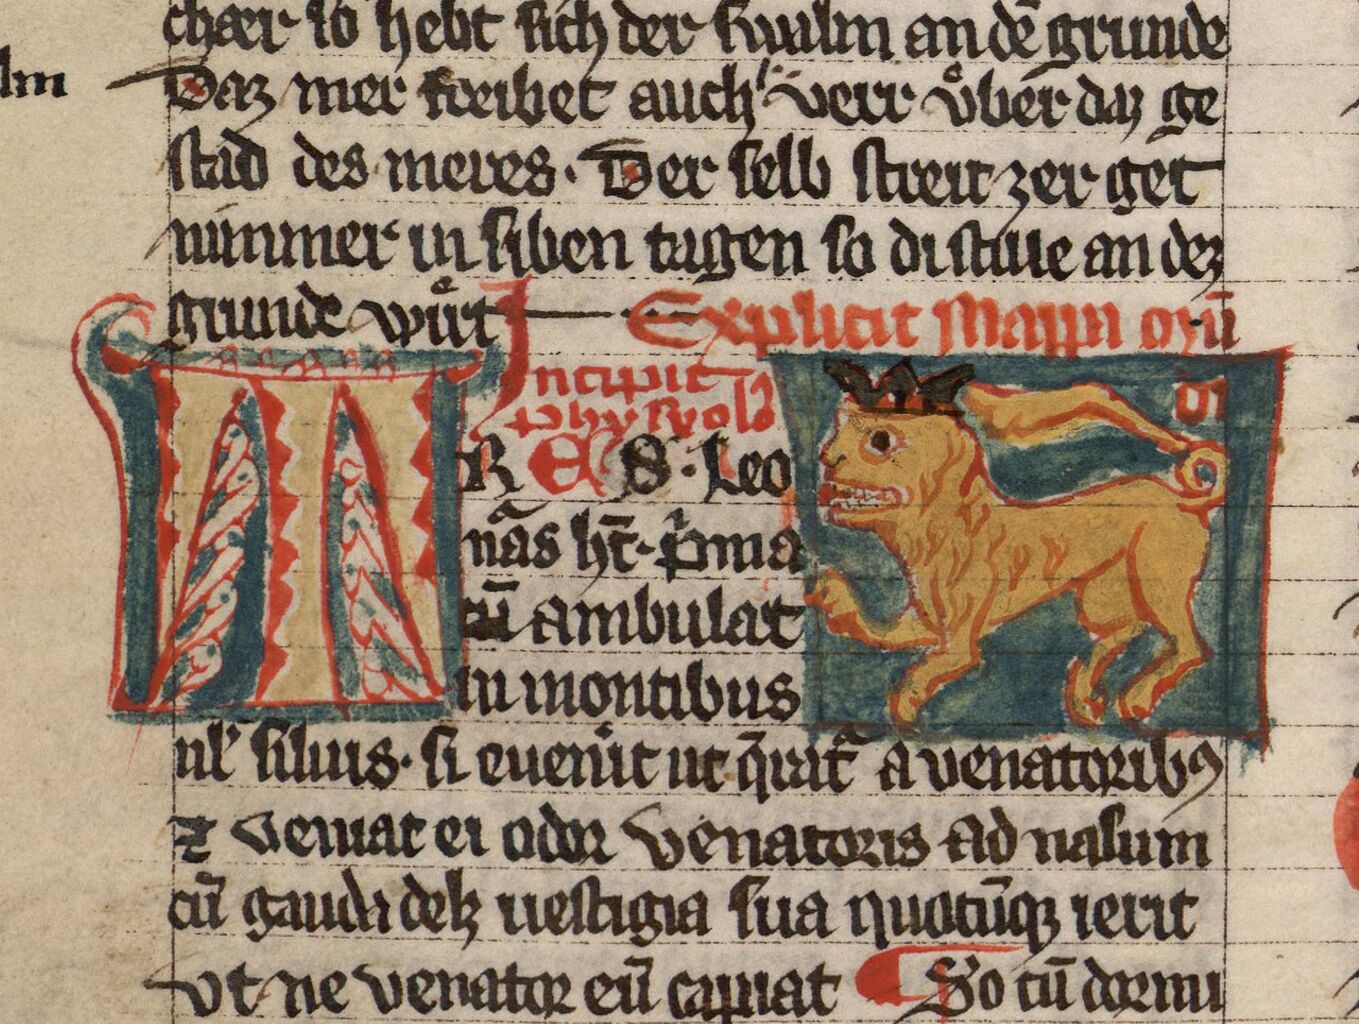 lm
chær so hebt sich der swalm an dē grunde
Daz mer treibet auch verr vͦber daz ge
stad des meres. Der selb streit zer get
nimmer in siben tagen so di stille an dez
grunde wuͦrt Explicit Mappa
Incipit
phys
R E S. Leo
nās ht̄.
cū ambulat
in montibus
siluis. si euenit ut a venatoribꝯ
⁊ veniat ei odor venatoris ad nasum
cū uestigia sua quocūqꝫ ierit
vt ne venator eū capiat ¶ So cū dormi